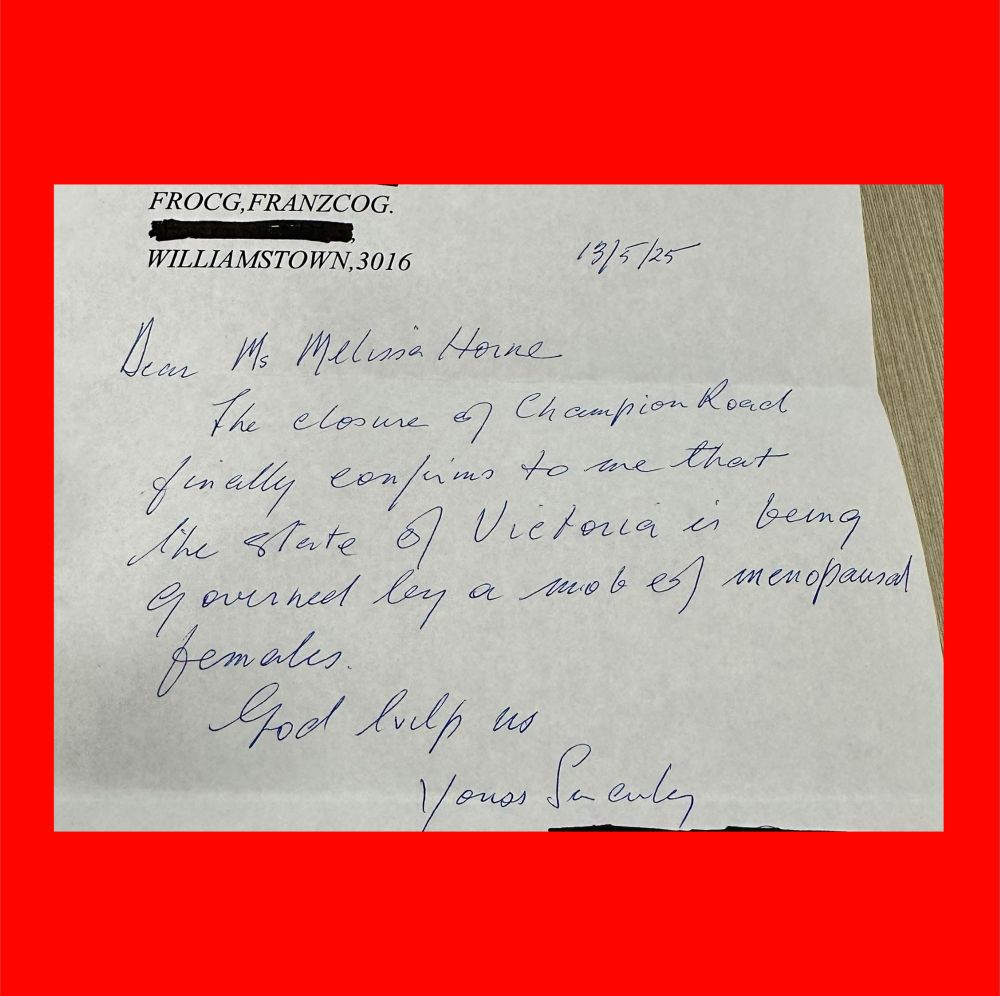 FROCG,FRANZCOG.
WILLIAMSTOWN,3016
13/5/25
Dear Ms Melissa Horne
The closure of Champion Road
finally confirms to me that
the state of Victoria is being
governed by a mob of menopausal
females.
God help us
Yours Sincerely